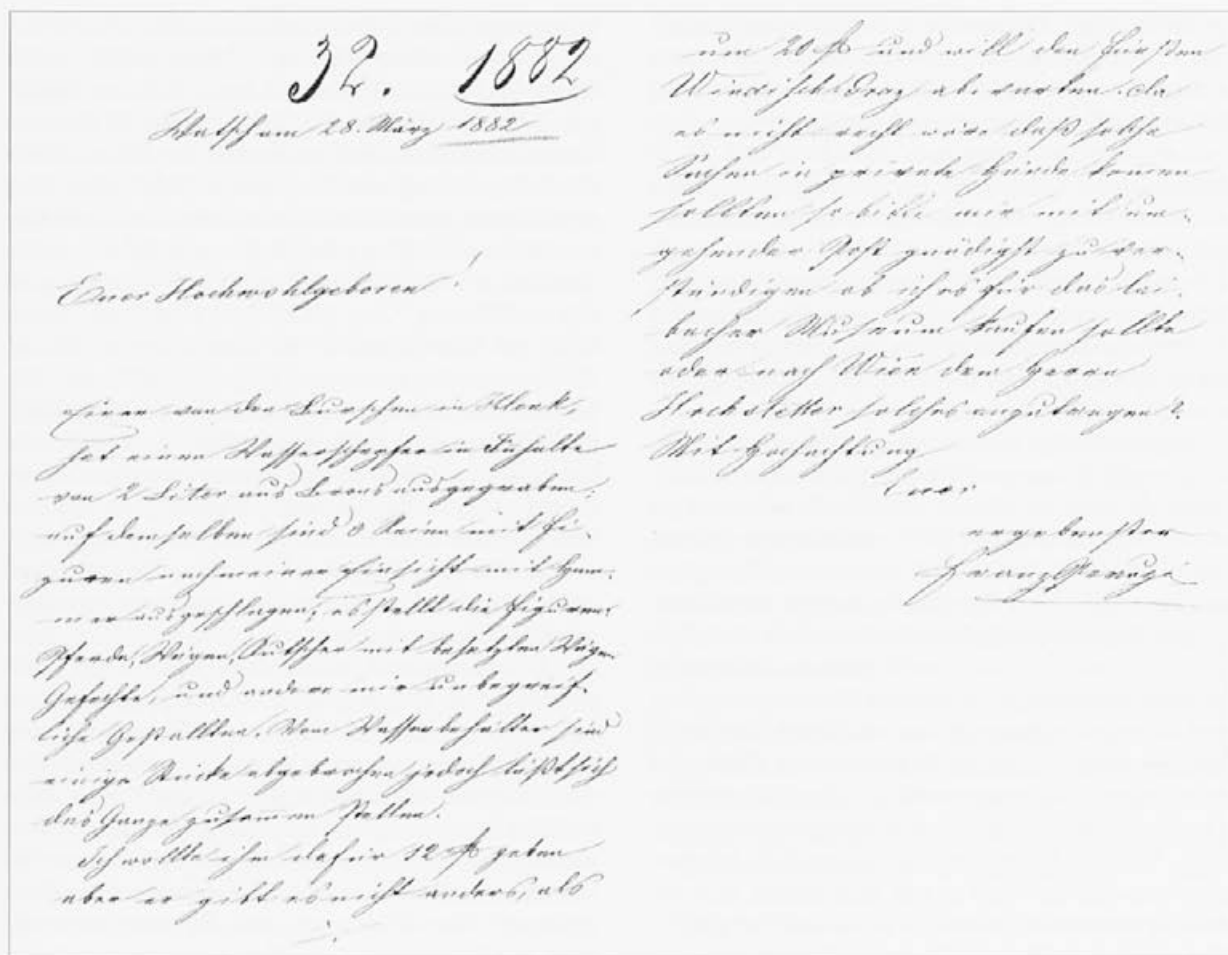 32. 1882
Watsch am 28. März 1882
Euer Hochwohlgeboren!
Einer von den Burschen in Klenk,
hat einen Wasserschepfer in Inhalte
von 2 Liter aus Brons ausgegraben;
auf demselben sind 3 Reien mit Fi-
guren nach meiner Einsicht mit Ham-
mer ausgeschlagen; es stellt die Figuren:
Pferde, Wägen, Kutscher mit besetzten Wägen
Gefechte, und andere mir unbegreif-
liche Gestallten. Vom Wasserbehälter sind
einige Stücke abgebrochen jedoch läßt sich
das Ganze zusammen stellen.
Ich wollte ihm dafür 12 f geben
aber er gibt es nicht anders, als
um 20 f und will den Fürsten
Windischgraz abwarten. da
es nicht recht wäre daß solche
Sachen in private Hände komen
sollten so bitte mir mit um-
gehender Post gnädigst zu ver-
ständigen ob ich es für das lai-
bacher Museum kaufen sollte
oder nach Wien dem Herrn
Hochstetter solches anzutragen?
Mit Hochachtung
Euer
ergebenster
Franz Peruzi